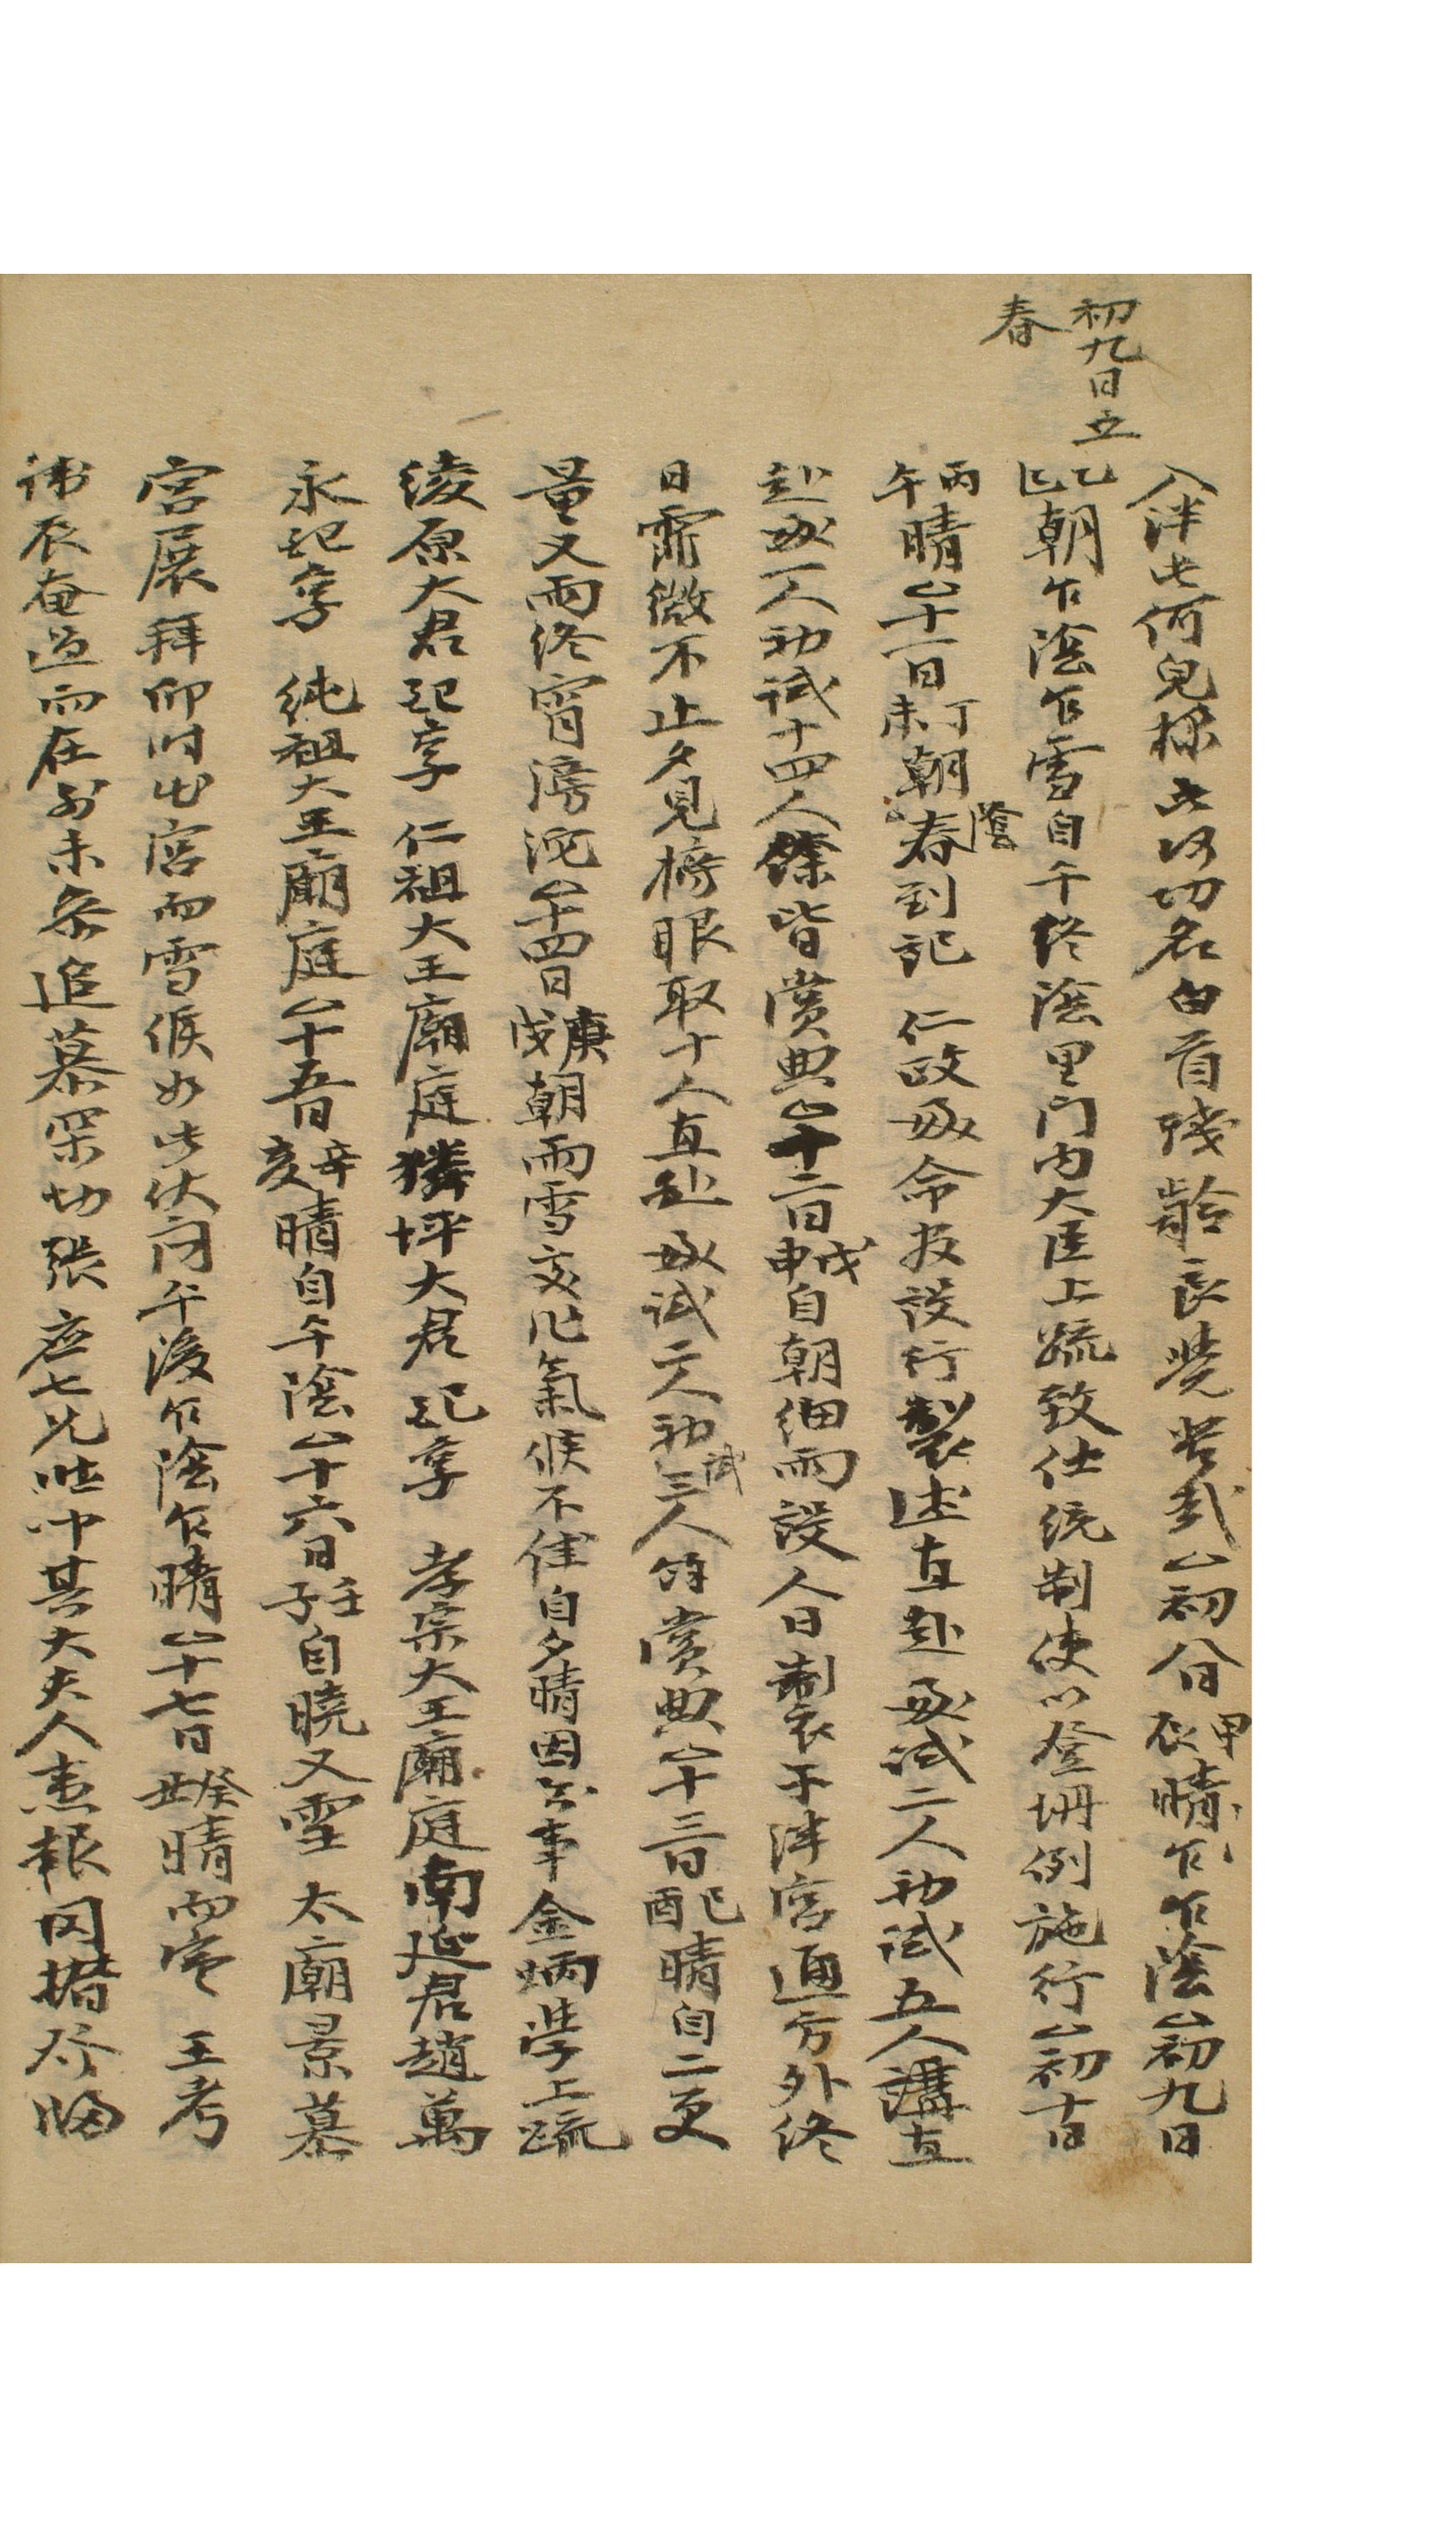 初九日立
春
入泮 此何兒樣 此何切名 白首殘齡 良覺 △初八日甲辰晴乍乍陰△初九日
乙巳朝乍陰乍雪自午終陰里門內大臣上疏致仕統制使以登坍例施行△初十日
丙午晴△十一日丁未朝陰春到記 仁政殿命technically設行製述直赴殿試二人初試五人講直
赴殿一人初試十四人餘皆賞典△十二日戊申自朝細雨設人日製于泮宮通方外終
日霏微不止夕見榜眼取十人直赴殿試二人初試三人餘賞典△十三日己酉晴自二更
量又雨終宵滂沱△十四日庚戌朝雨雪交作氣候不佳自夕晴因公事金炳學上疏
綾原大君祀孫 仁祖大王廟庭獜坪大君祀孫 孝宗大王廟庭南延君趙萬
永祀孫 純祖大王廟庭△十五日辛亥晴自午陰△十六日壬子自曉又雪 太廟景慕
宮展拜仰同出宮而雪候如此伏悶午後乍陰乍晴△十七日癸丑晴而寒 王考
諱辰奄過而在外未參追慕深切張庶七兄喪中其大夫人恚報罔措 歸